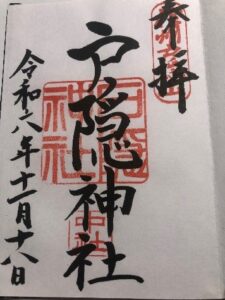 奉拝
戸隠神社
戸隠神社
中社
令和六年十一月十八日